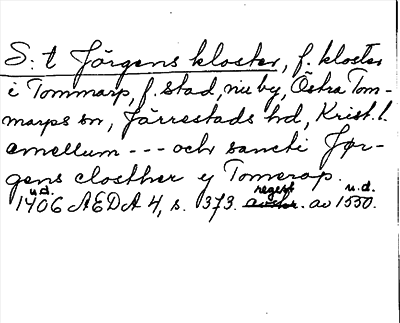 S:t Jörgens kloster, f. kloster
i Tommarp, f. stad, nu by, Östra Tom-
marps sn, Järrestads hd, Krist. l.
emellum --- och sancti Jør-
gens closther y Tomerop.
u.d. regest u.d.
1406 AEDA 4, s. 373. avskr. av 1550.